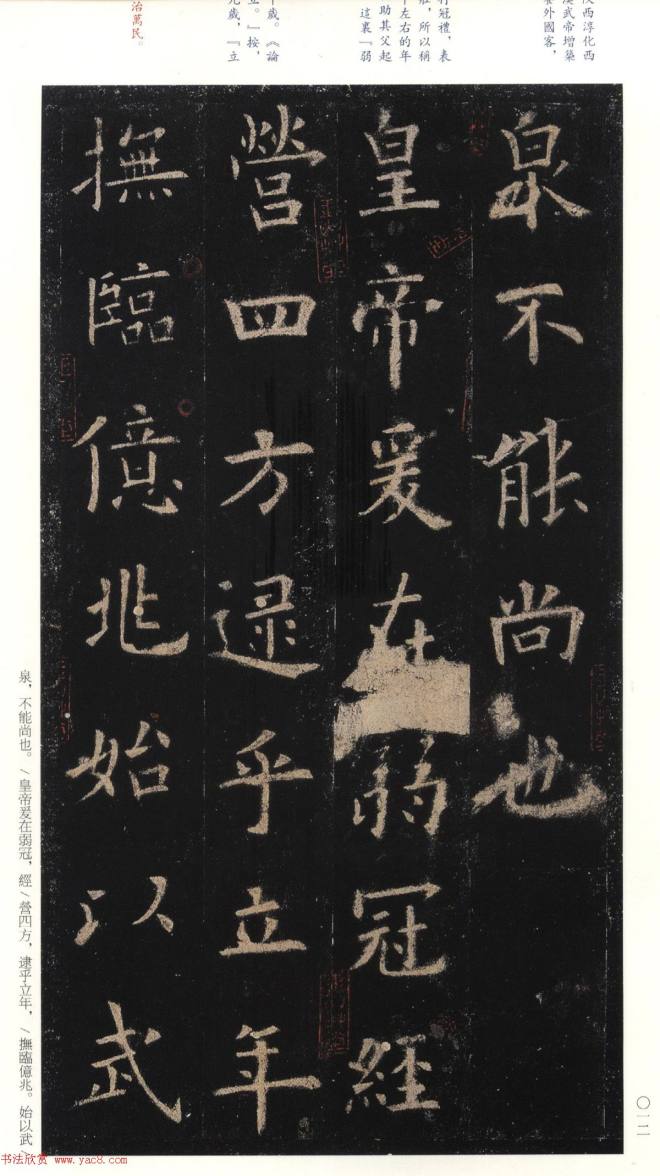 陝西淳化西
漢武帝增築
宴外國客,
行冠禮,表
壯,所以稱
十左右的年
助其父起
這裏『弱
十歲。《論
立。』按,
九歲,『立
治萬民。
泉不能尚也
皇帝爰在弱冠經
營四方逮乎立年
撫臨億兆始以武
泉,不能尚也。/皇帝爰在弱冠,經/營四方,逮乎立年,/撫臨億兆。始以武/
〇一二
书法欣赏 www.yac8.com